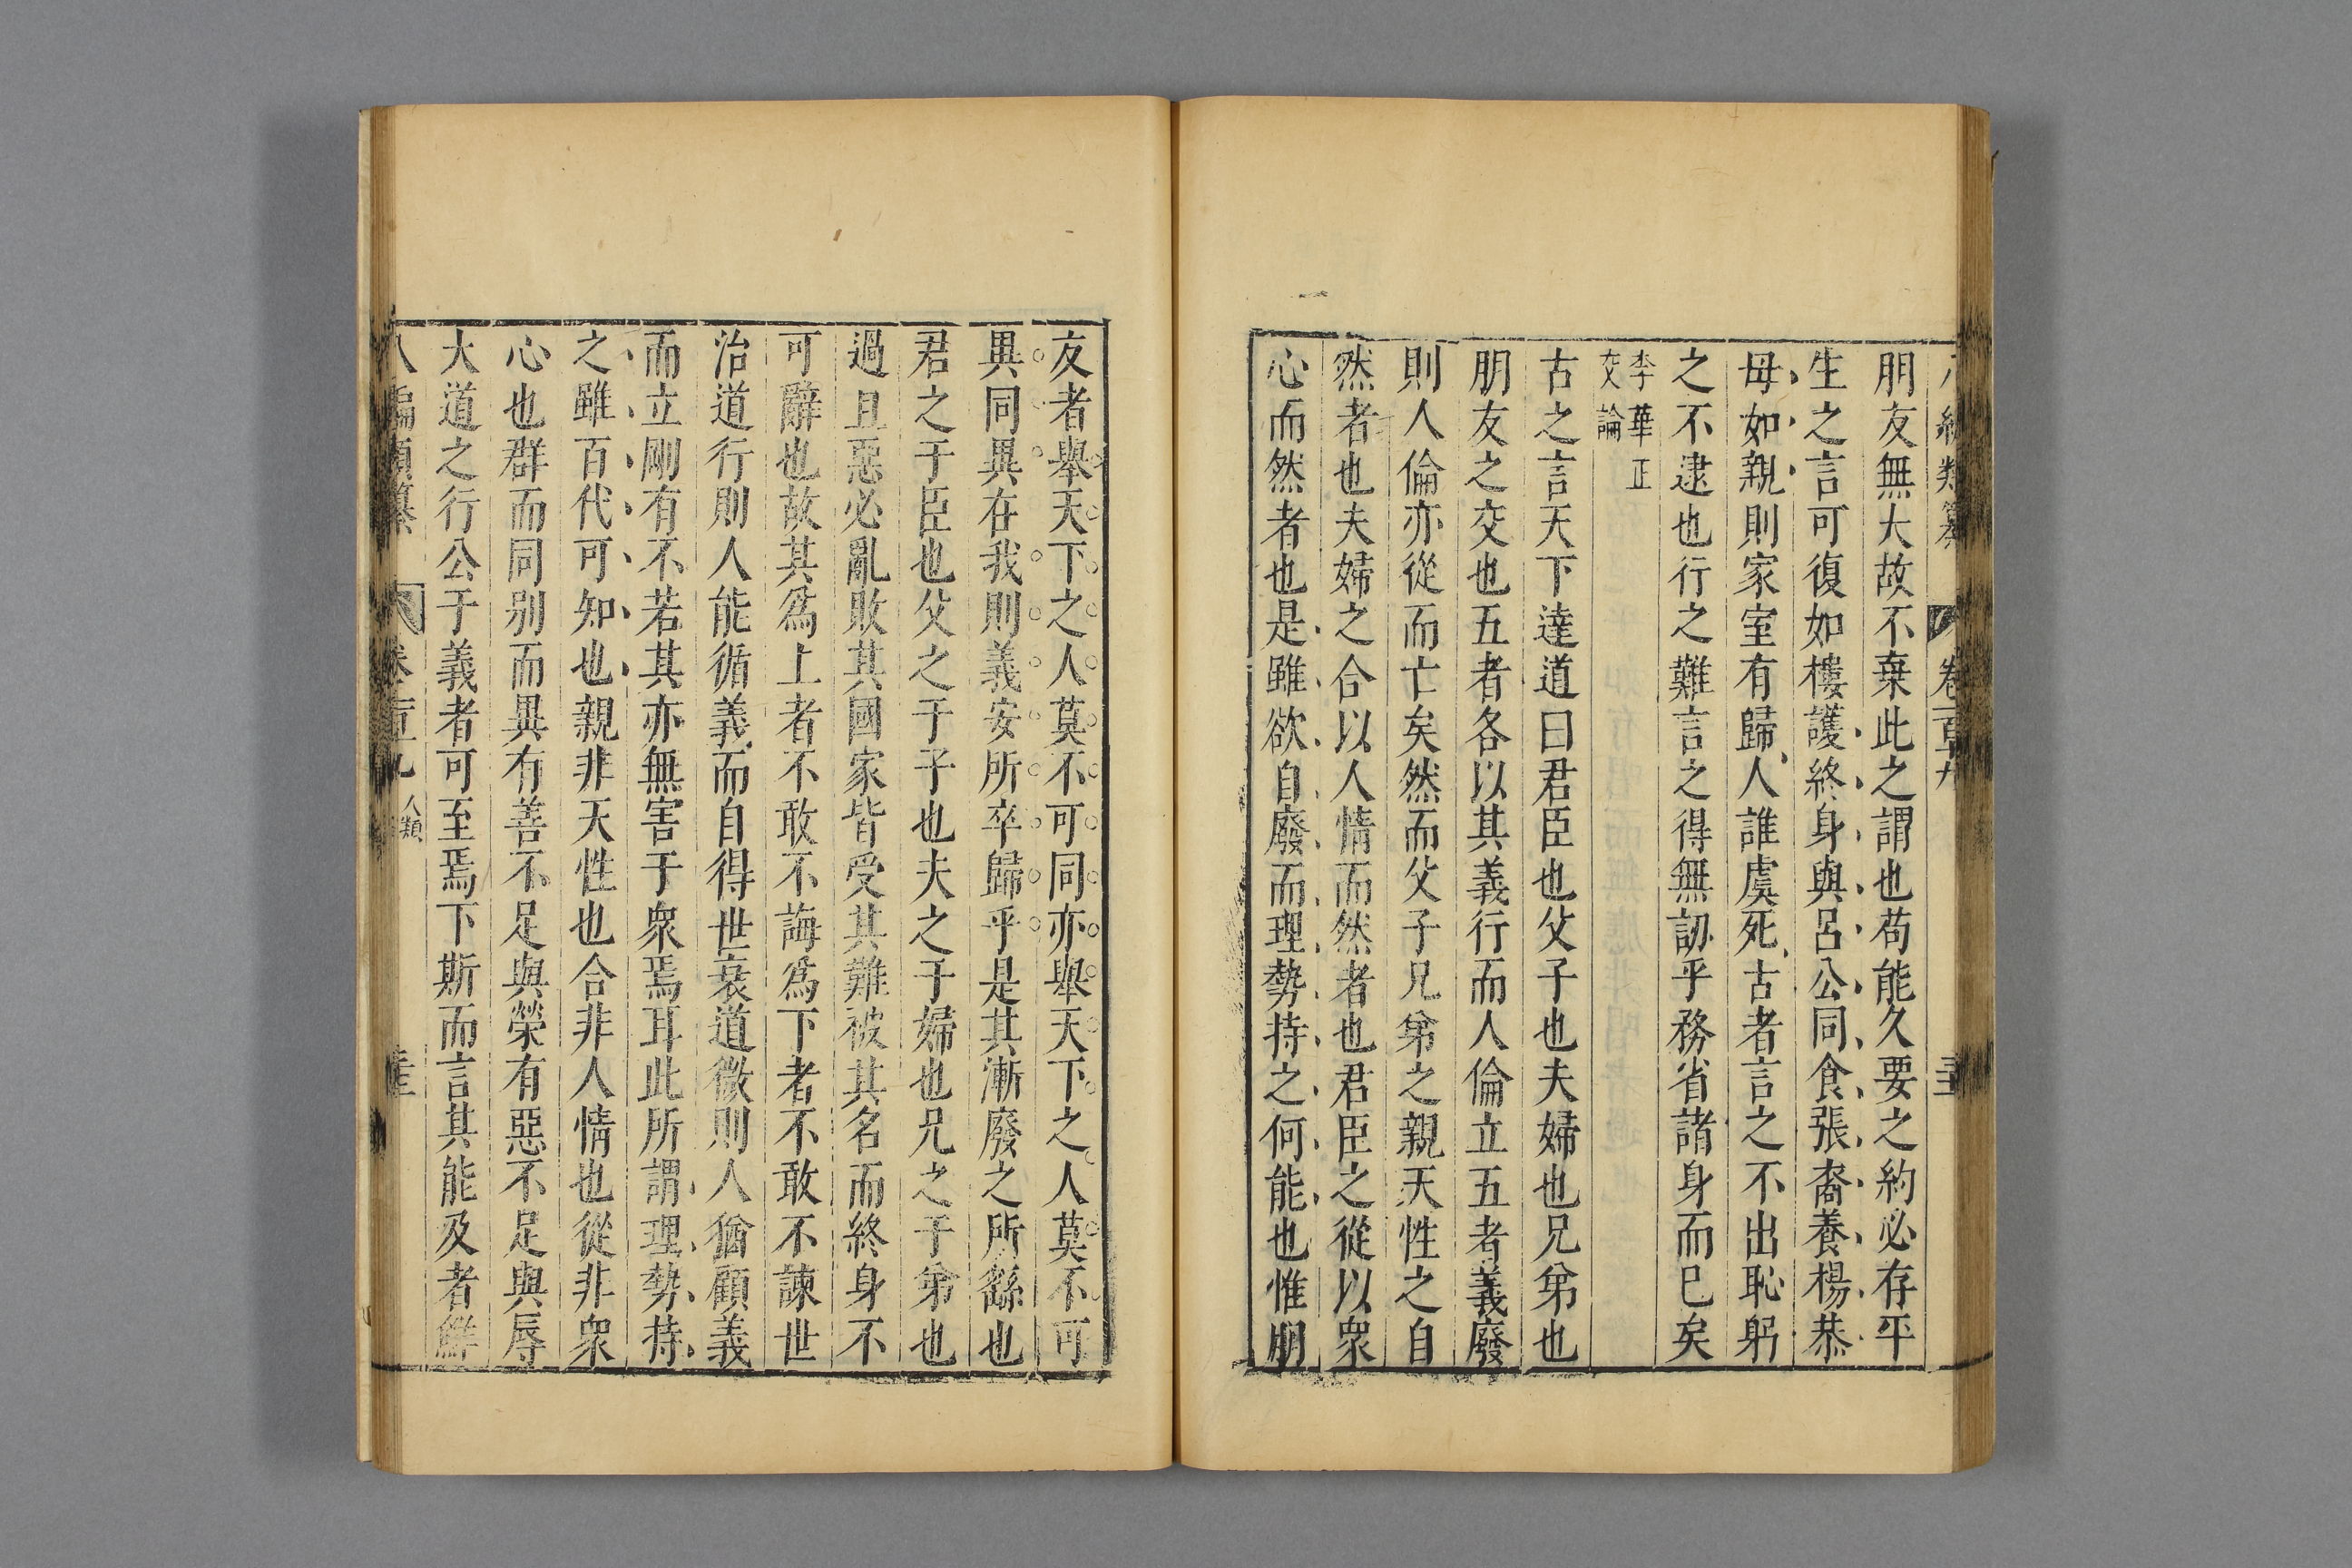 編類纂 卷一百九
朋友無大故不棄此之謂也苟能久要之約必存平
生之言可復如樓護終身與呂公同食張裔養楊恭
母如親則家室有歸人誰虞死古者言之不出恥躬
之不逮也行之難言之得無訒乎務省諸身而巳矣
李華正
交論
古之言天下達道曰君臣也父子也夫婦也兄弟也
朋友之交也五者各以其義行而人倫立五者義廢
則人倫亦從而亡矣然而父子兄弟之親天性之自
然者也夫婦之合以人情而然者也君臣之從以衆
心而然者也是雖欲自廢而理勢持之何能也惟朋
友者舉天下之人莫不可同亦舉天下之人莫不可
異同異在我則義安所卒歸乎是其漸廢之所繇也
君之于臣也父之于子也夫之于婦也兄之于弟也
過且惡必亂敗其國家皆受其難被其名而終身不
可辭也故其爲上者不敢不誨爲下者不敢不諫世
治道行則人能循義而自得世衰道微則人猶顧義
而立剛有不若其亦無害于衆焉耳此所謂理勢持
之雖百代可知也親非天性也合非人情也從非衆
心也群而同别而異有善不足與榮有惡不足與辱
大道之行公于義者可至焉下斯而言其能及者鮮
八編類纂 卷一百九 人類